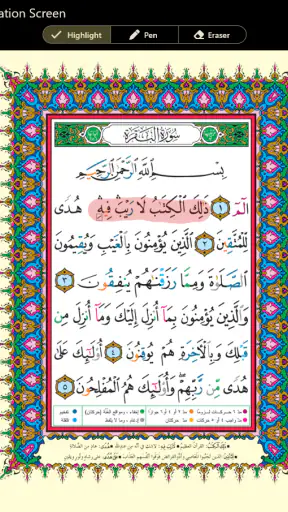 ation Screen
Highlight Pen Eraser
سُورَةُ الْبَقَرَة
بِسْمِ اللَّهِ الرَّحْمَٰنِ الرَّحِيمِ
الٓمٓ ١ ذَٰلِكَ الْكِتَٰبُ لَا رَيْبَ فِيهِ هُدًى
لِّلْمُتَّقِينَ ٢ الَّذِينَ يُؤْمِنُونَ بِالْغَيْبِ وَيُقِيمُونَ
الصَّلَوٰةَ وَمِمَّا رَزَقْنَٰهُمْ يُنفِقُونَ ٣
وَالَّذِينَ يُؤْمِنُونَ بِمَآ أُنزِلَ إِلَيْكَ وَمَآ أُنزِلَ مِن
قَبْلِكَ وَبِالْءَاخِرَةِ هُمْ يُوقِنُونَ ٤ أُو۟لَٰٓئِكَ عَلَىٰ
هُدًى مِّن رَّبِّهِمْ وَأُو۟لَٰٓئِكَ هُمُ الْمُفْلِحُونَ ٥